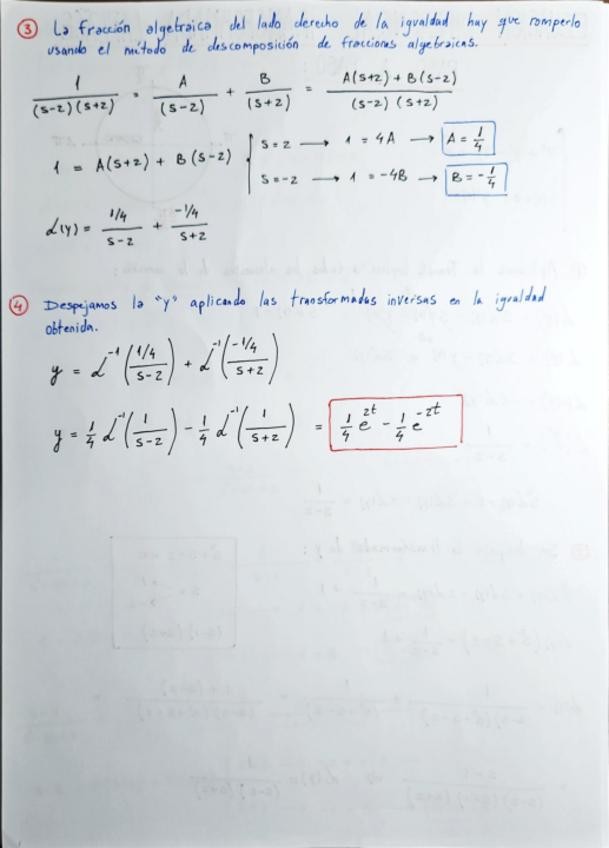 ③ La fracción algebraica del lado derecho de la igualdad hay que romperlo
usando el método de descomposición de fracciones algebraicas.
1/((s-2)(s+2)) = A/(s-2) + B/(s+2) = (A(s+2) + B(s-2))/((s-2)(s+2))
1 = A(s+2) + B(s-2) { s=2 → 1 = 4A → A = 1/4
s=-2 → 1 = -4B → B = -1/4
ℒ(y) = (1/4)/(s-2) + (-1/4)/(s+2)
④ Despejamos la "y" aplicando las transformadas inversas en la igualdad
obtenida.
y = ℒ⁻¹((1/4)/(s-2)) + ℒ⁻¹((-1/4)/(s+2))
y = 1/4 ℒ⁻¹(1/(s-2)) - 1/4 ℒ⁻¹(1/(s+2)) = 1/4 e^{2t} - 1/4 e^{-2t}